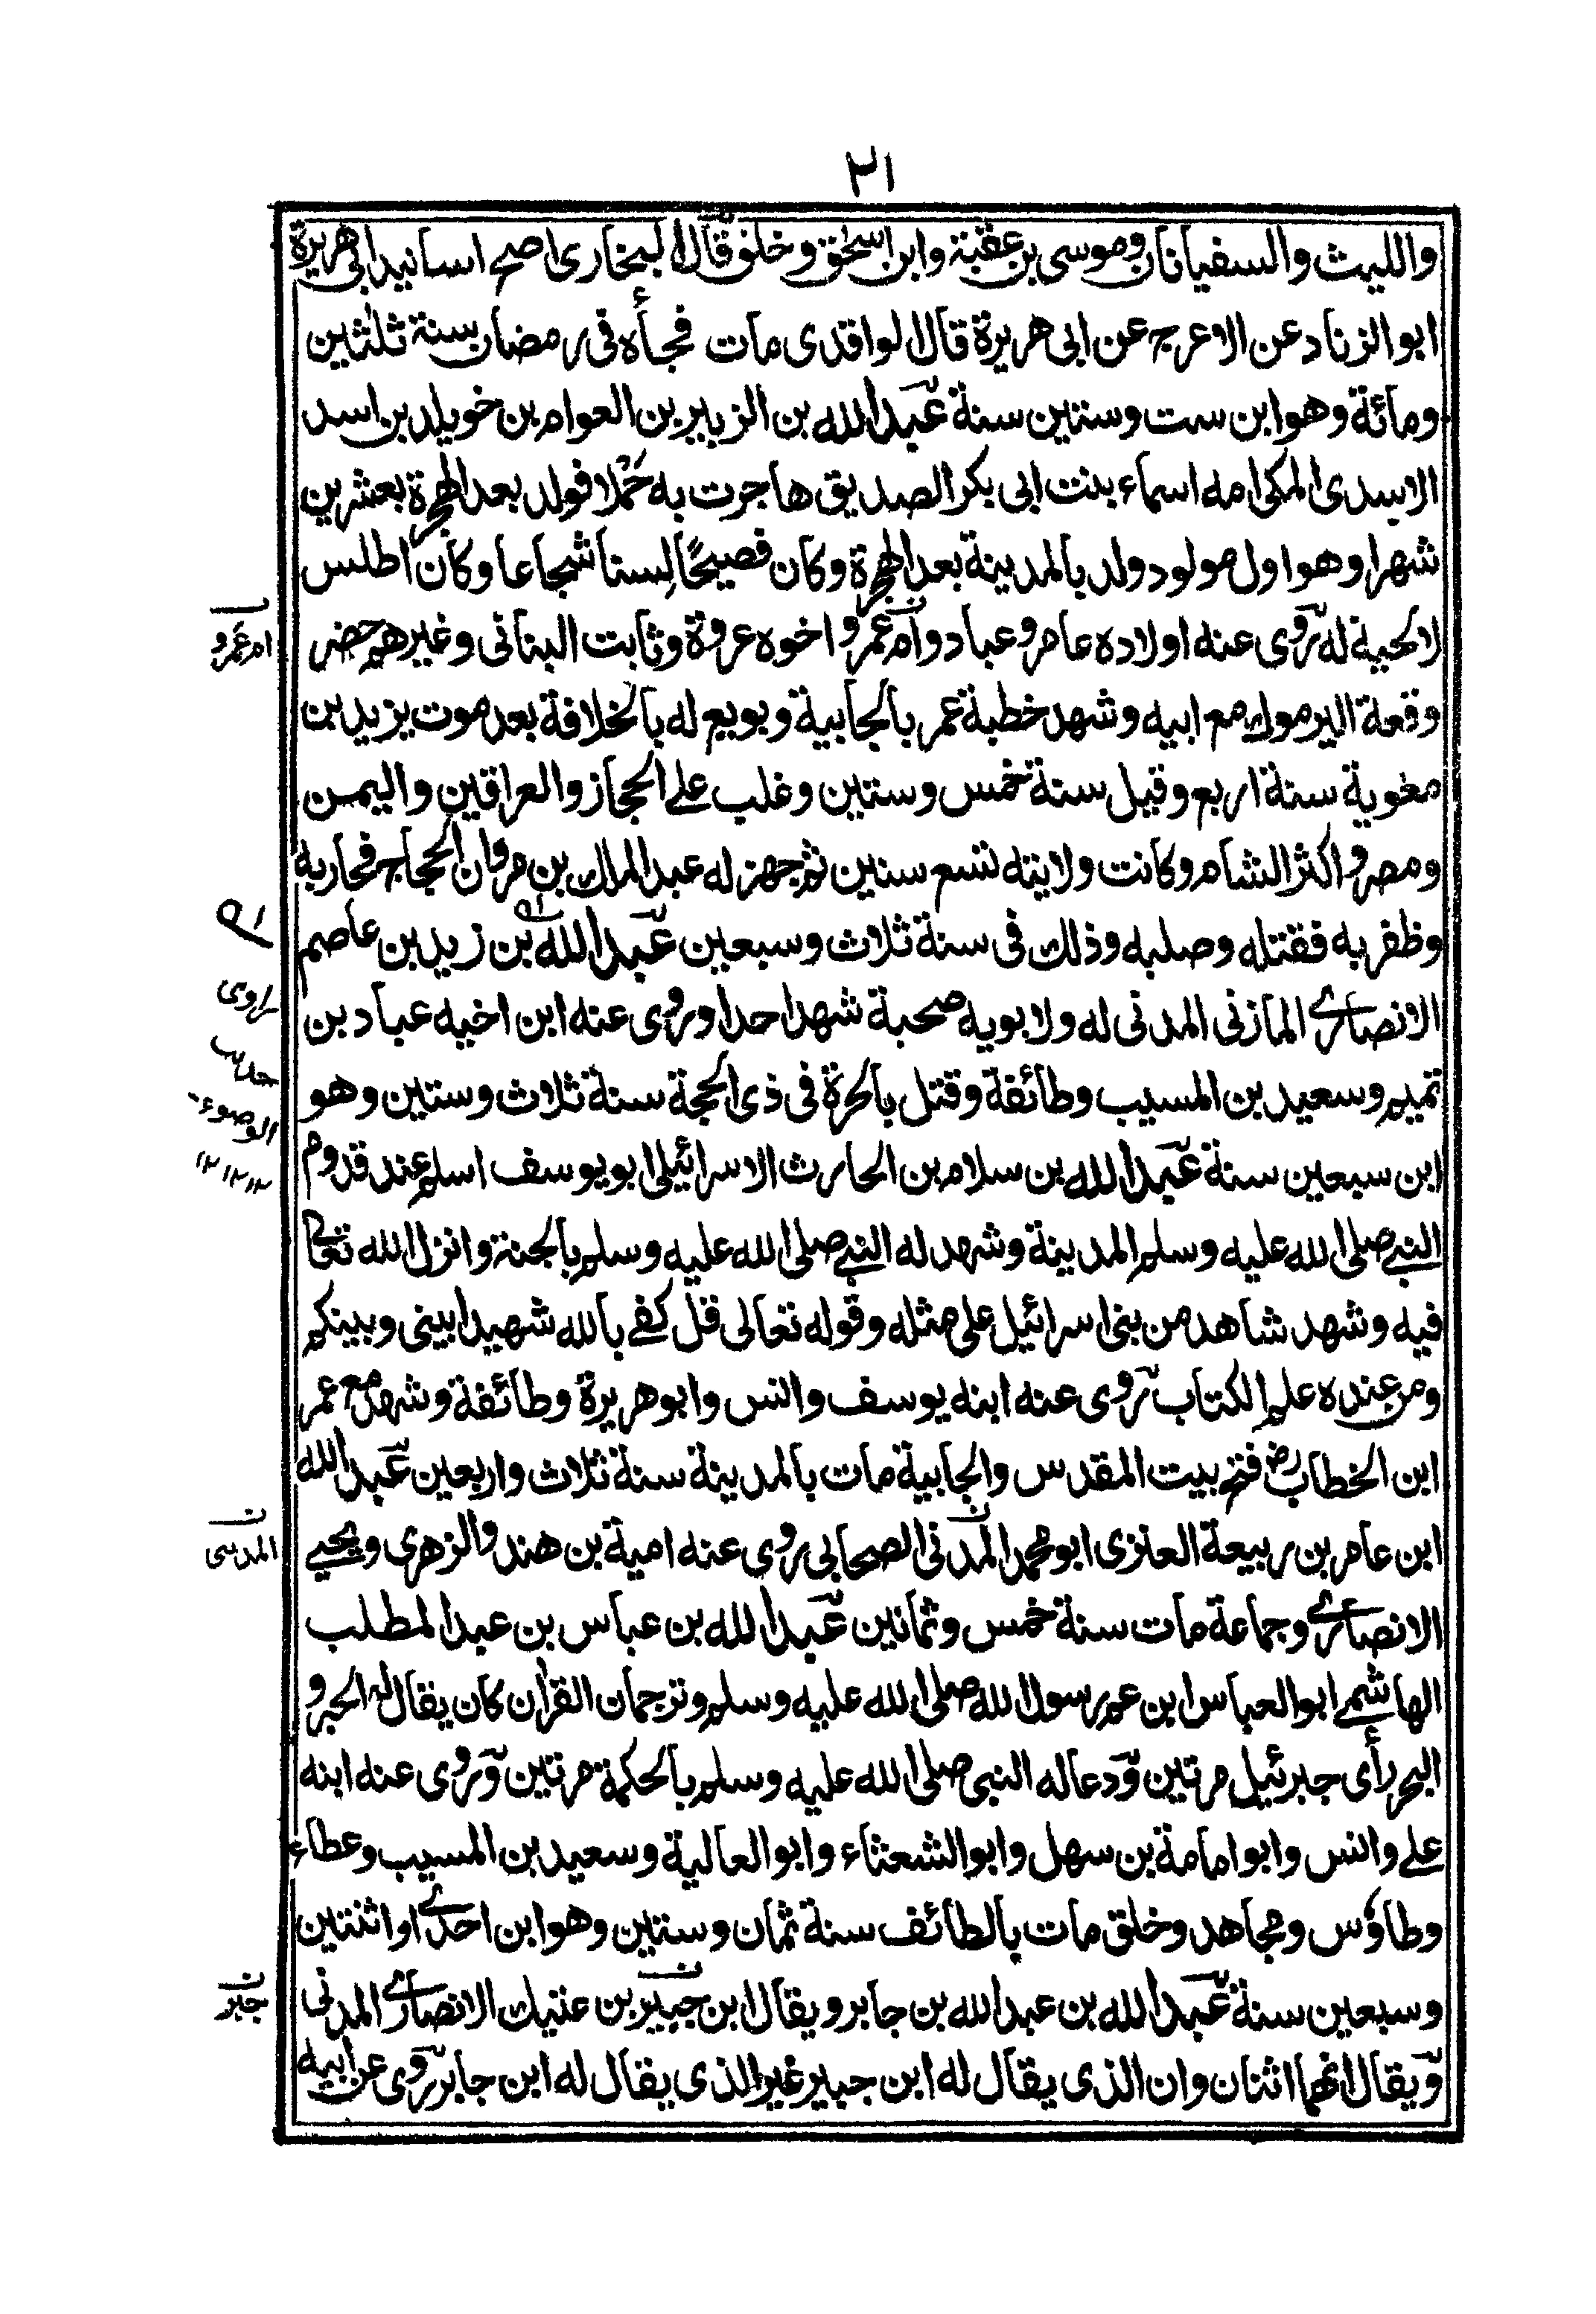 ٢١
والليث والسفيانان وموسى بن عقبة وابن اسحٰق وخلق قال البخارى اصح اسانيد ابى هريرة
ابو الزناد عن الاعرج عن ابى هريرة قال الواقدى مات فجأة فى رمضان سنة ثلثين
ومائة وهو ابن ست وستين سنة عبد الله بن الزبير بن العوام بن خويلد بن اسد
الاسدى المكى امه اسماء بنت ابى بكر الصديق هاجرت به حَمْلا فولد بعد الهجرة بعشرين
شهرا وهو اول مولود ولد بالمدينة بعد الهجرة وكان فصيحًا لِسنا شجاعا وكان اطلس
لا لحية له روى عنه اولاده عامر وعباد وام عمرو اخوه عروة وثابت البنانى وغيرهم حضر
وقعة اليرموك مع ابيه وشهد خطبة عمر بالجابية وبويع له بالخلافة بعد موت يزيد بن
معٰوية سنة اربع وقيل سنة خمس وستين وغلب على الحجاز والعراقين واليمن
ومصر واكثر الشام وكانت ولايته تسع سنين ثم جهز له عبد الملك بن مروان الحجاج فحاربه
وظفر به فقتله وصلبه وذلك فى سنة ثلاث وسبعين عبد الله بن زيد بن عاصم
الانصارى المازنى المدنى له ولابويه صحبة شهد احدا وروى عنه ابن اخيه عباد بن
تميم وسعيد بن المسيب وطائفة وقتل بالحرة فى ذى الحجة سنة ثلاث وستين وهو
ابن سبعين سنة عبد الله بن سلام بن الحارث الاسرائيلى ابو يوسف اسلم عند قدوم
النبى صلى الله عليه وسلم المدينة وشهد له النبى صلى الله عليه وسلم بالجنة وانزل الله تعالى
فيه وشهد شاهد من بنى اسرائيل على مثله وقوله تعالى قل كفى بالله شهيدا بينى وبينكم
ومن عنده علم الكتاب روى عنه ابنه يوسف وانس وابو هريرة وطائفة وشهد مع عمر
ابن الخطاب رض فتح بيت المقدس والجابية مات بالمدينة سنة ثلاث واربعين عبد الله
ابن عامر بن ربيعة العنزى ابو محمد المدنى الصحابى روى عنه امية بن هند والزهرى ويحيى
الانصارى وجماعة مات سنة خمس وثمانين عبد الله بن عباس بن عبد المطلب
الهاشمى ابو العباس ابن عم رسول الله صلى الله عليه وسلم وترجمان القرآن كان يقال له الحبر و
البحر رأى جبرئيل مرتين ودعا له النبى صلى الله عليه وسلم بالحكمة مرتين وروى عنه ابنه
على وانس وابو امامة بن سهل وابو الشعثاء وابو العالية وسعيد بن المسيب وعطاء
وطاؤس ومجاهد وخلق مات بالطائف سنة ثمان وستين وهو ابن احدى او اثنتين
وسبعين سنة عبد الله بن عبد الله بن جابر ويقال ابن جبير بن عتيك الانصارى المدنى
ويقال انهما اثنان وان الذى يقال له ابن جبير غير الذى يقال له ابن جابر روى عن ابيه
ن
ام عمرو
راوى
حديث
الوضوء
١٢ ١٢ ١٢
ن
المدنى
ن
جبر